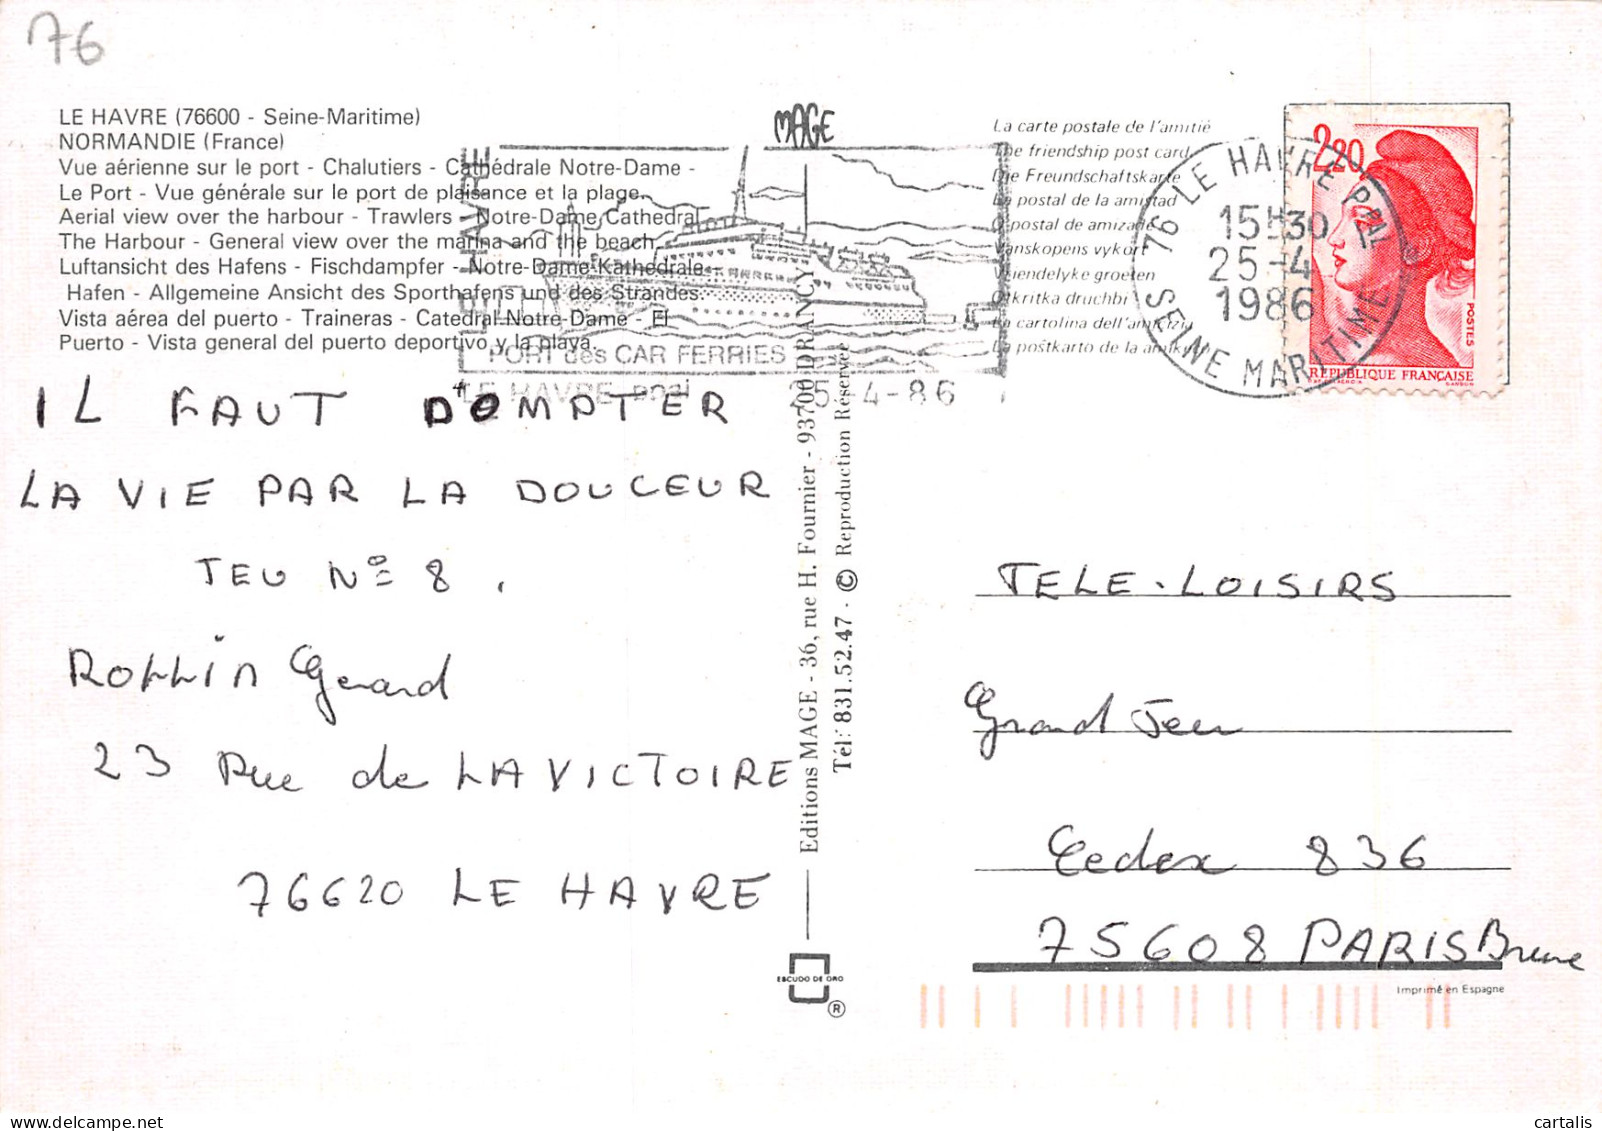 76
LE HAVRE (76600 - Seine-Maritime)
NORMANDIE (France)
Vue aérienne sur le port - Chalutiers - Cathédrale Notre-Dame -
Le Port - Vue générale sur le port de plaisance et la plage.
Aerial view over the harbour - Trawlers - Notre-Dame Cathedral
The Harbour - General view over the marina and the beach.
Luftansicht des Hafens - Fischdampfer - Notre-Dame-Kathedrale
Hafen - Allgemeine Ansicht des Sporthafens und des Strandes.
Vista aérea del puerto - Traineras - Catedral Notre-Dame - El
Puerto - Vista general del puerto deportivo y la playa.
MAGE
LE HAVRE
PORT des CAR FERRIES
LE HAVRE ppal 25-4-86
La carte postale de l'amitié
The friendship post card
Die Freundschaftskarte
La postal de la amistad
O postal de amizade
Vanskopens vykort
Vriendelyke groeten
Otkritka druchbi
La cartolina dell'amicizia
La poŝtkarto de la amikeco
76 LE HAVRE PPAL
15H30
25-4
1986
SEINE MARITIME
2,20
POSTES
RÉPUBLIQUE FRANÇAISE
IL FAUT DOMPTER
LA VIE PAR LA DOUCEUR
JEU Nº 8.
ROLLIN Gérard
23 Rue de LA VICTOIRE
76620 LE HAVRE
Editions MAGE - 36, rue H. Fournier - 93700 DRANCY
Tél: 831.52.47 - © Reproduction Réservée
ESCUDO DE ORO
®
TELE-LOISIRS
Grand Jeu
Cedex 836
75608 PARIS Brune
Imprimé en Espagne
cartalis
www.delcampe.net